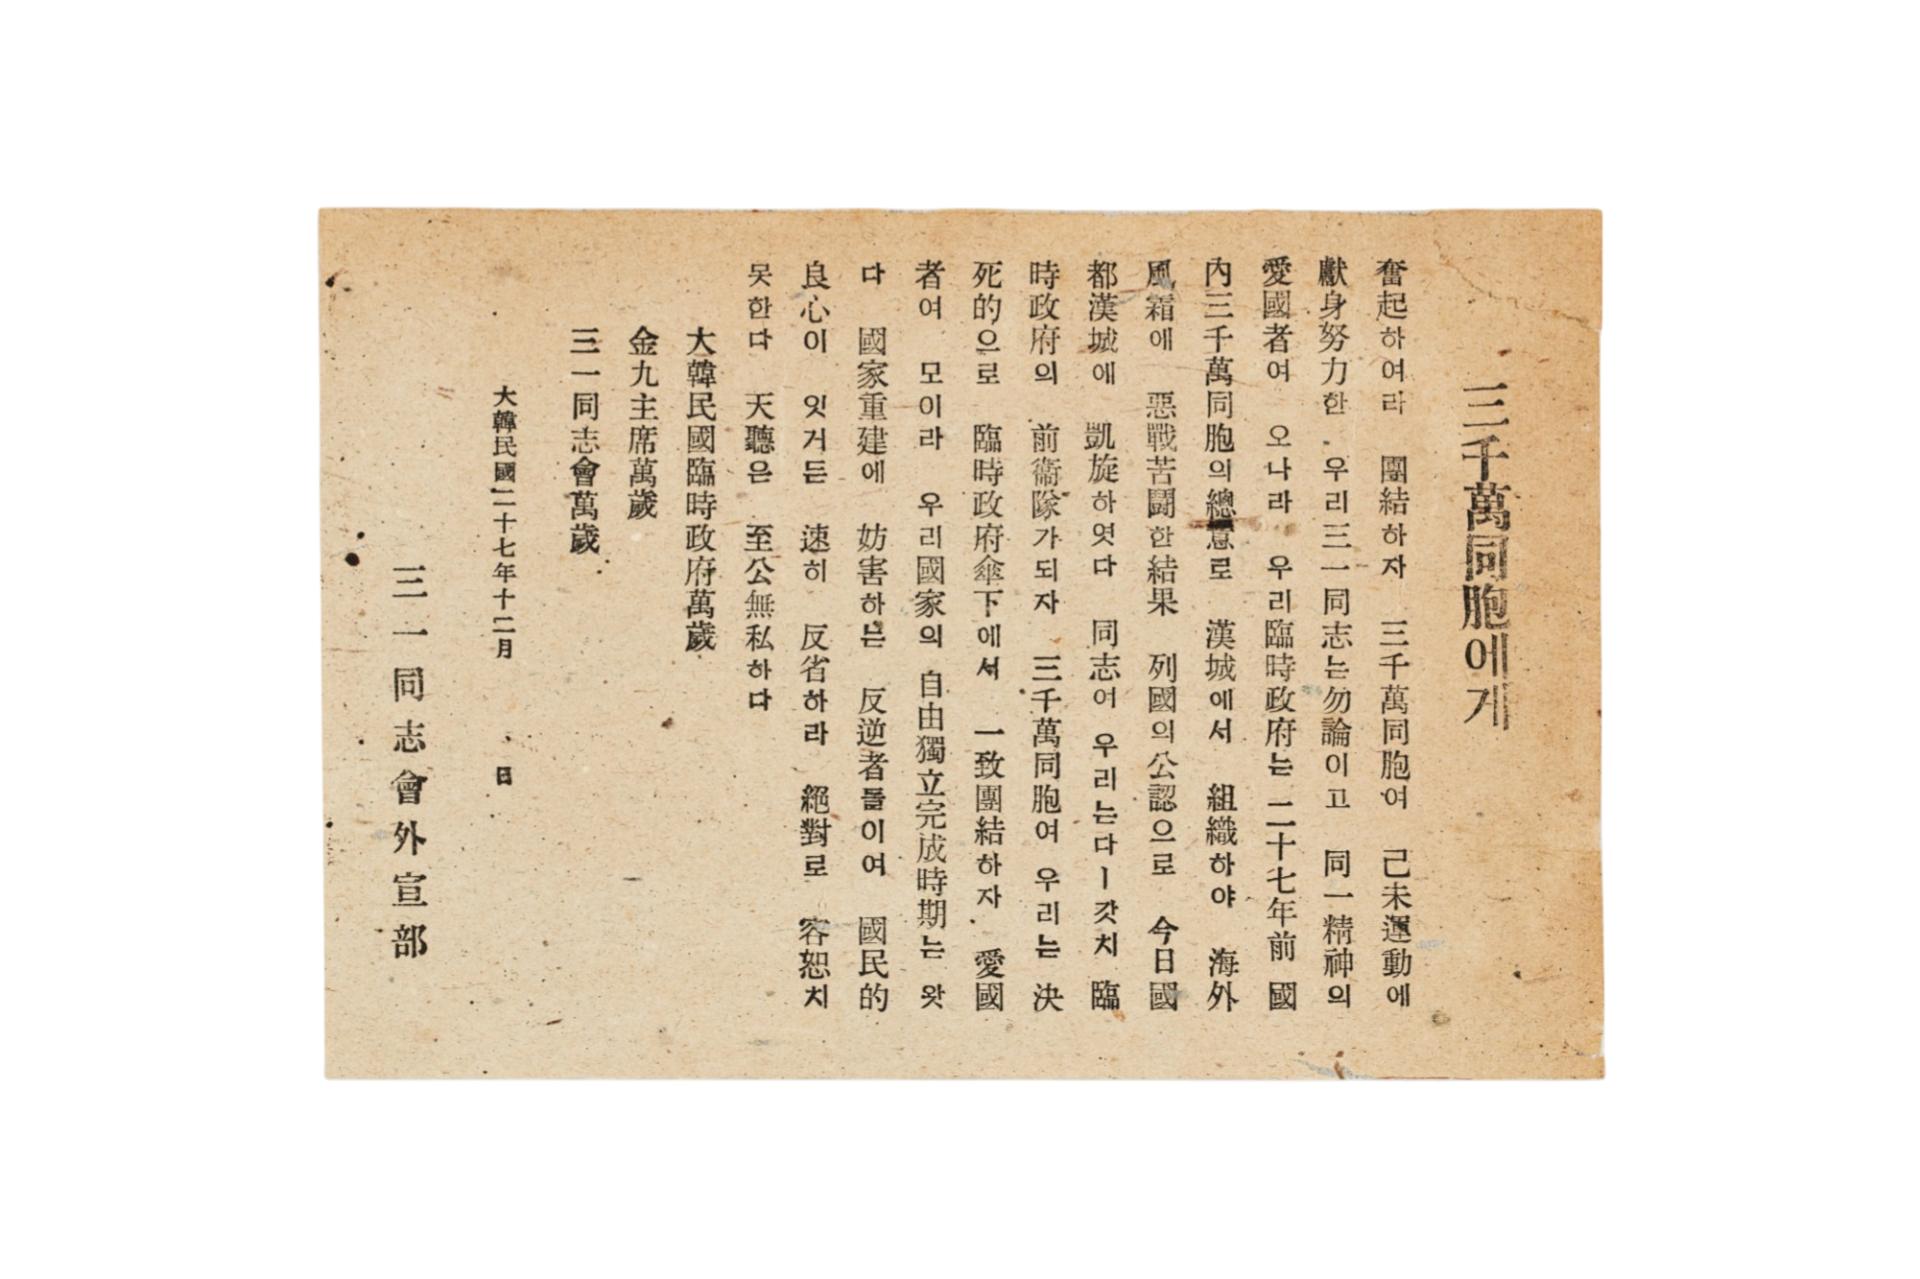 三千萬同胞에게
奮起하여라 團結하자 三千萬同胞여 己未運動에
獻身努力한 우리三一同志는勿論이고 同一精神의
愛國者여 오나라 우리臨時政府는 二十七年前 國
內三千萬同胞의總意로 漢城에서 組織하야 海外
風霜에 惡戰苦鬪한結果 列國의公認으로 今日國
都漢城에 凱旋하엿다 同志여우리는다ー갓치 臨
時政府의 前衞隊가되자 三千萬同胞여 우리는 決
死的으로 臨時政府傘下에서 一致團結하자 愛國
者여 모이라 우리國家의 自由獨立完成時期는 왓
다 國家重建에 妨害하는 反逆者들이여 國民的
良心이 잇거든 速히 反省하라 絕對로 容恕치
못한다 天聽은 至公無私하다
大韓民國臨時政府萬歲
金九主席萬歲
三一同志會萬歲
大韓民國二十七年十二月 日
三一同志會外宣部